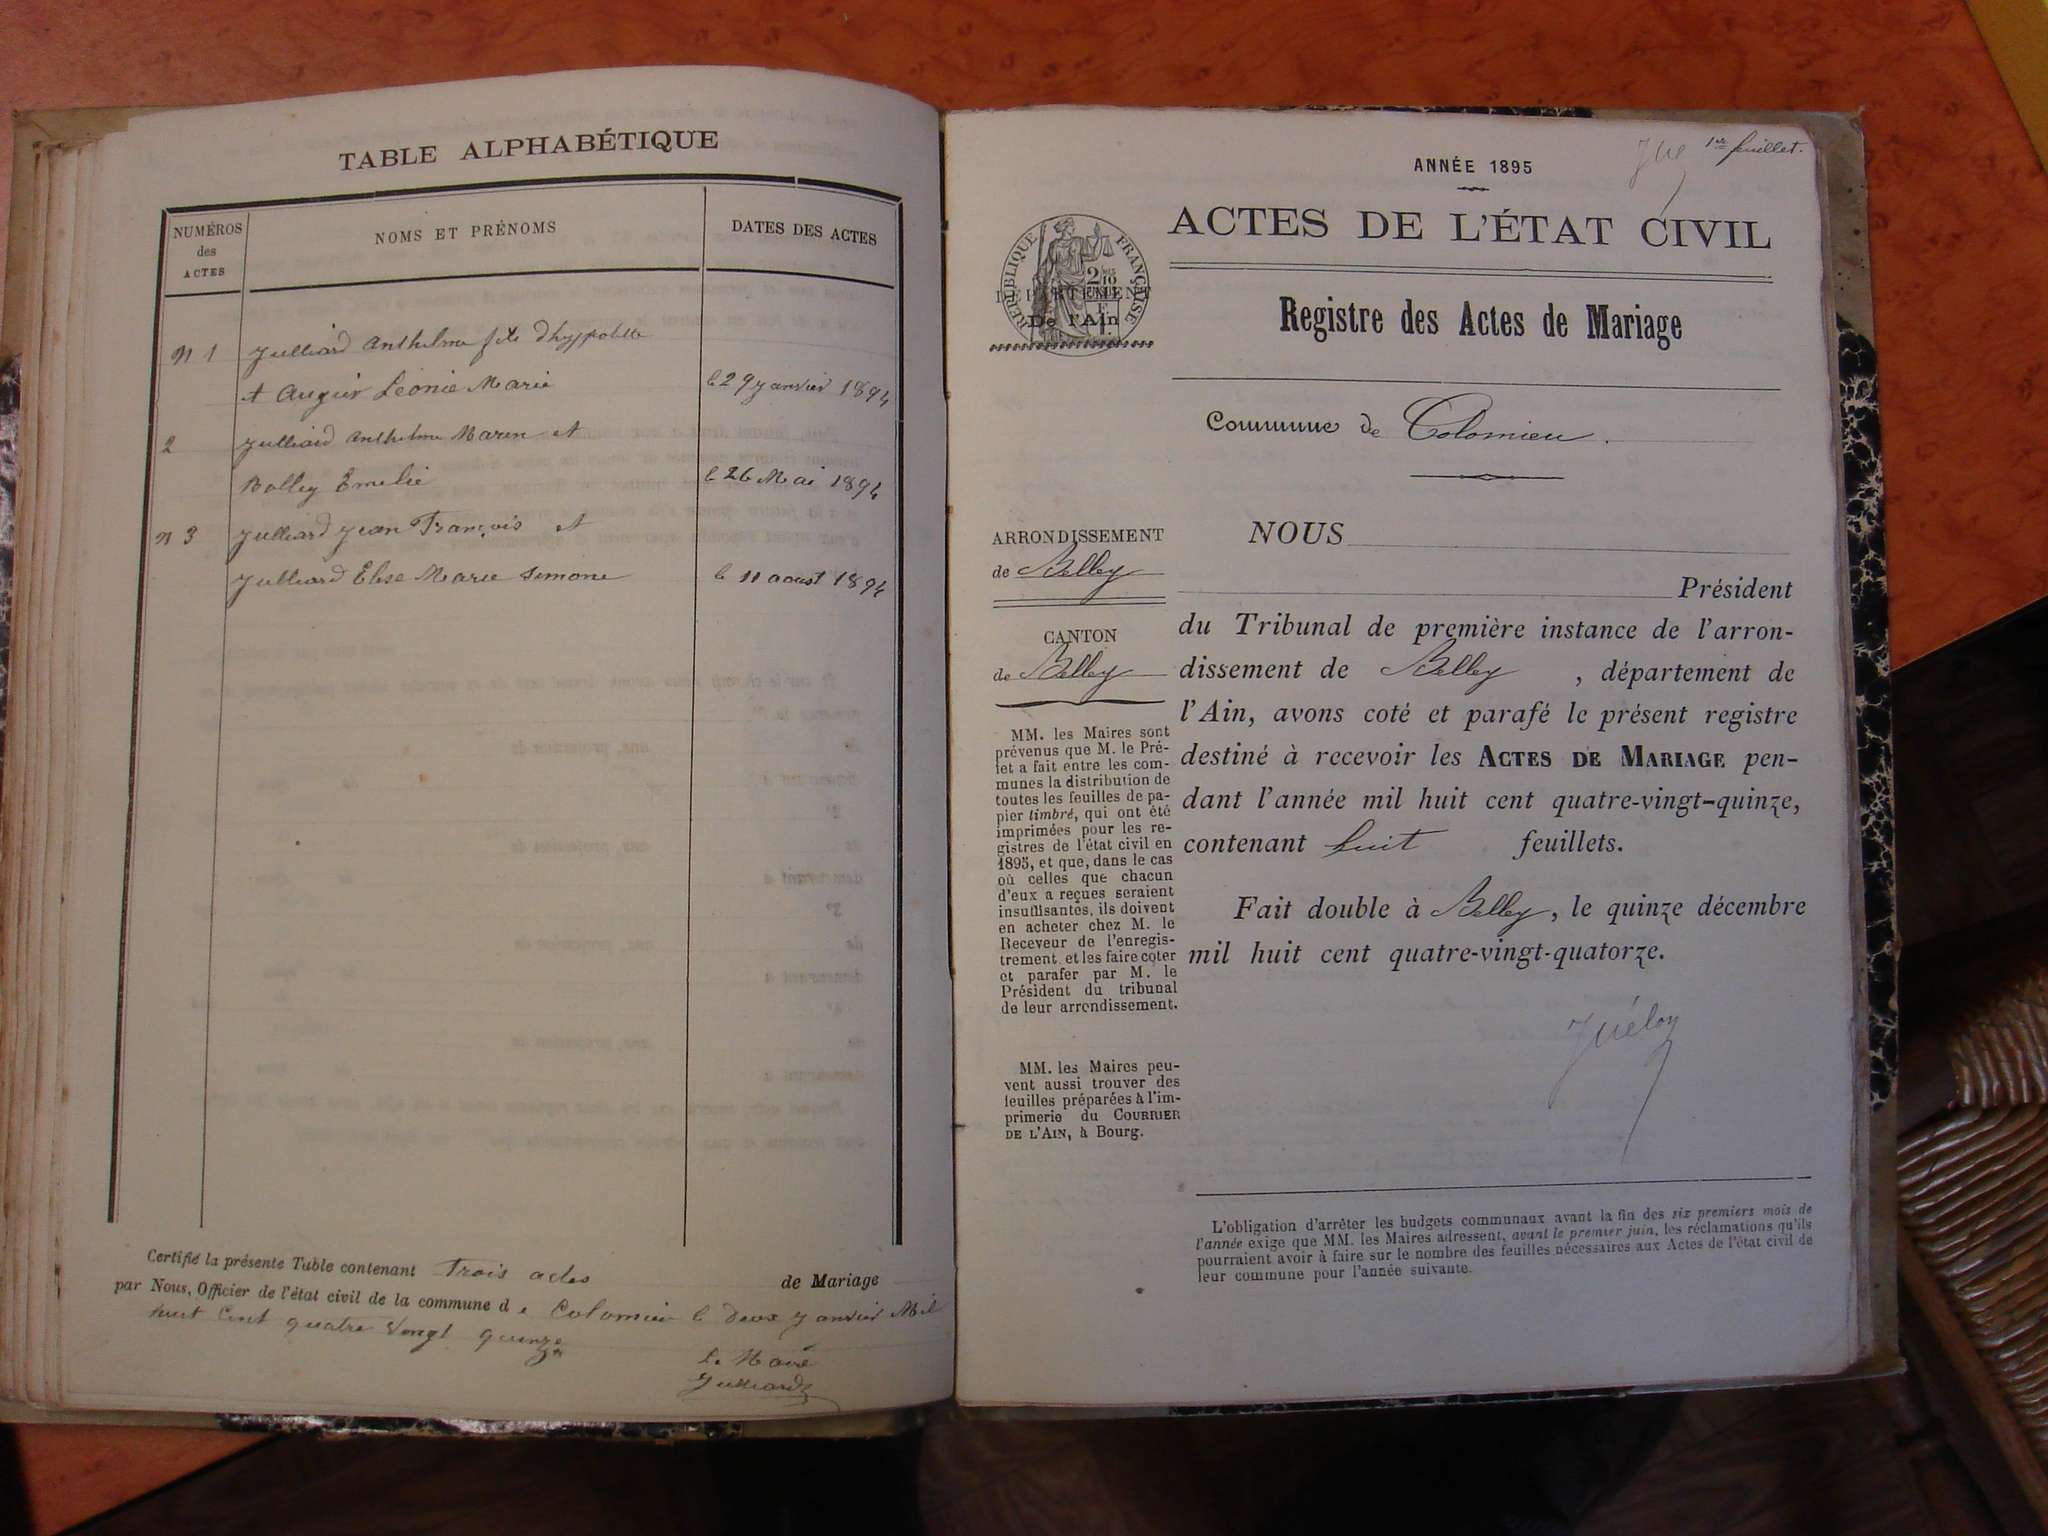 TABLE ALPHABÉTIQUE
NUMÉROS
des
ACTES
NOMS ET PRÉNOMS
DATES DES ACTES
N 1
Julliard Anthelme fils d'hyppolitte
et Augier Léonie Marie
le 29 janvier 1894
2
Julliard Anthelme Marin et
Bolley Emelie
le 26 Mai 1894
N 3
Julliard Jean François et
Julliard Elise Marie Simone
le 11 aoust 1894
Certifié la présente Table contenant trois actes de Mariage
par Nous, Officier de l'état civil de la commune de Colomieu le deux janvier Mil
huit cent quatre vingt quinze
le Maire
Julliard
1er feuillet.
ANNÉE 1895
ACTES DE L'ÉTAT CIVIL
RÉPUBLIQUE FRANÇAISE
DÉPARTEMENT
De l'Ain
Registre des Actes de Mariage
Commune de Colomieu.
ARRONDISSEMENT
de Belley
CANTON
de Belley
MM. les Maires sont
prévenus que M. le Pré-
fet a fait entre les com-
munes la distribution de
toutes les feuilles de pa-
pier timbré, qui ont été
imprimées pour les re-
gistres de l'état civil en
1895, et que, dans le cas
où celles que chacun
d'eux a reçues seraient
insuffisantes, ils doivent
en acheter chez M. le
Receveur de l'enregis-
trement et les faire coter
et parafer par M. le
Président du tribunal
de leur arrondissement.
MM. les Maires peu-
vent aussi trouver des
feuilles préparées à l'im-
primerie du COURRIER
DE L'AIN, à Bourg.
NOUS
Président
du Tribunal de première instance de l'arron-
dissement de Belley, département de
l'Ain, avons coté et parafé le présent registre
destiné à recevoir les ACTES DE MARIAGE pen-
dant l'année mil huit cent quatre-vingt-quinze,
contenant huit feuillets.
Fait double à Belley, le quinze décembre
mil huit cent quatre-vingt-quatorze.
L'obligation d'arrêter les budgets communaux avant la fin des six premiers mois de
l'année exige que MM. les Maires adressent, avant le premier juin, les réclamations qu'ils
pourraient avoir à faire sur le nombre des feuilles nécessaires aux Actes de l'état civil de
leur commune pour l'année suivante.